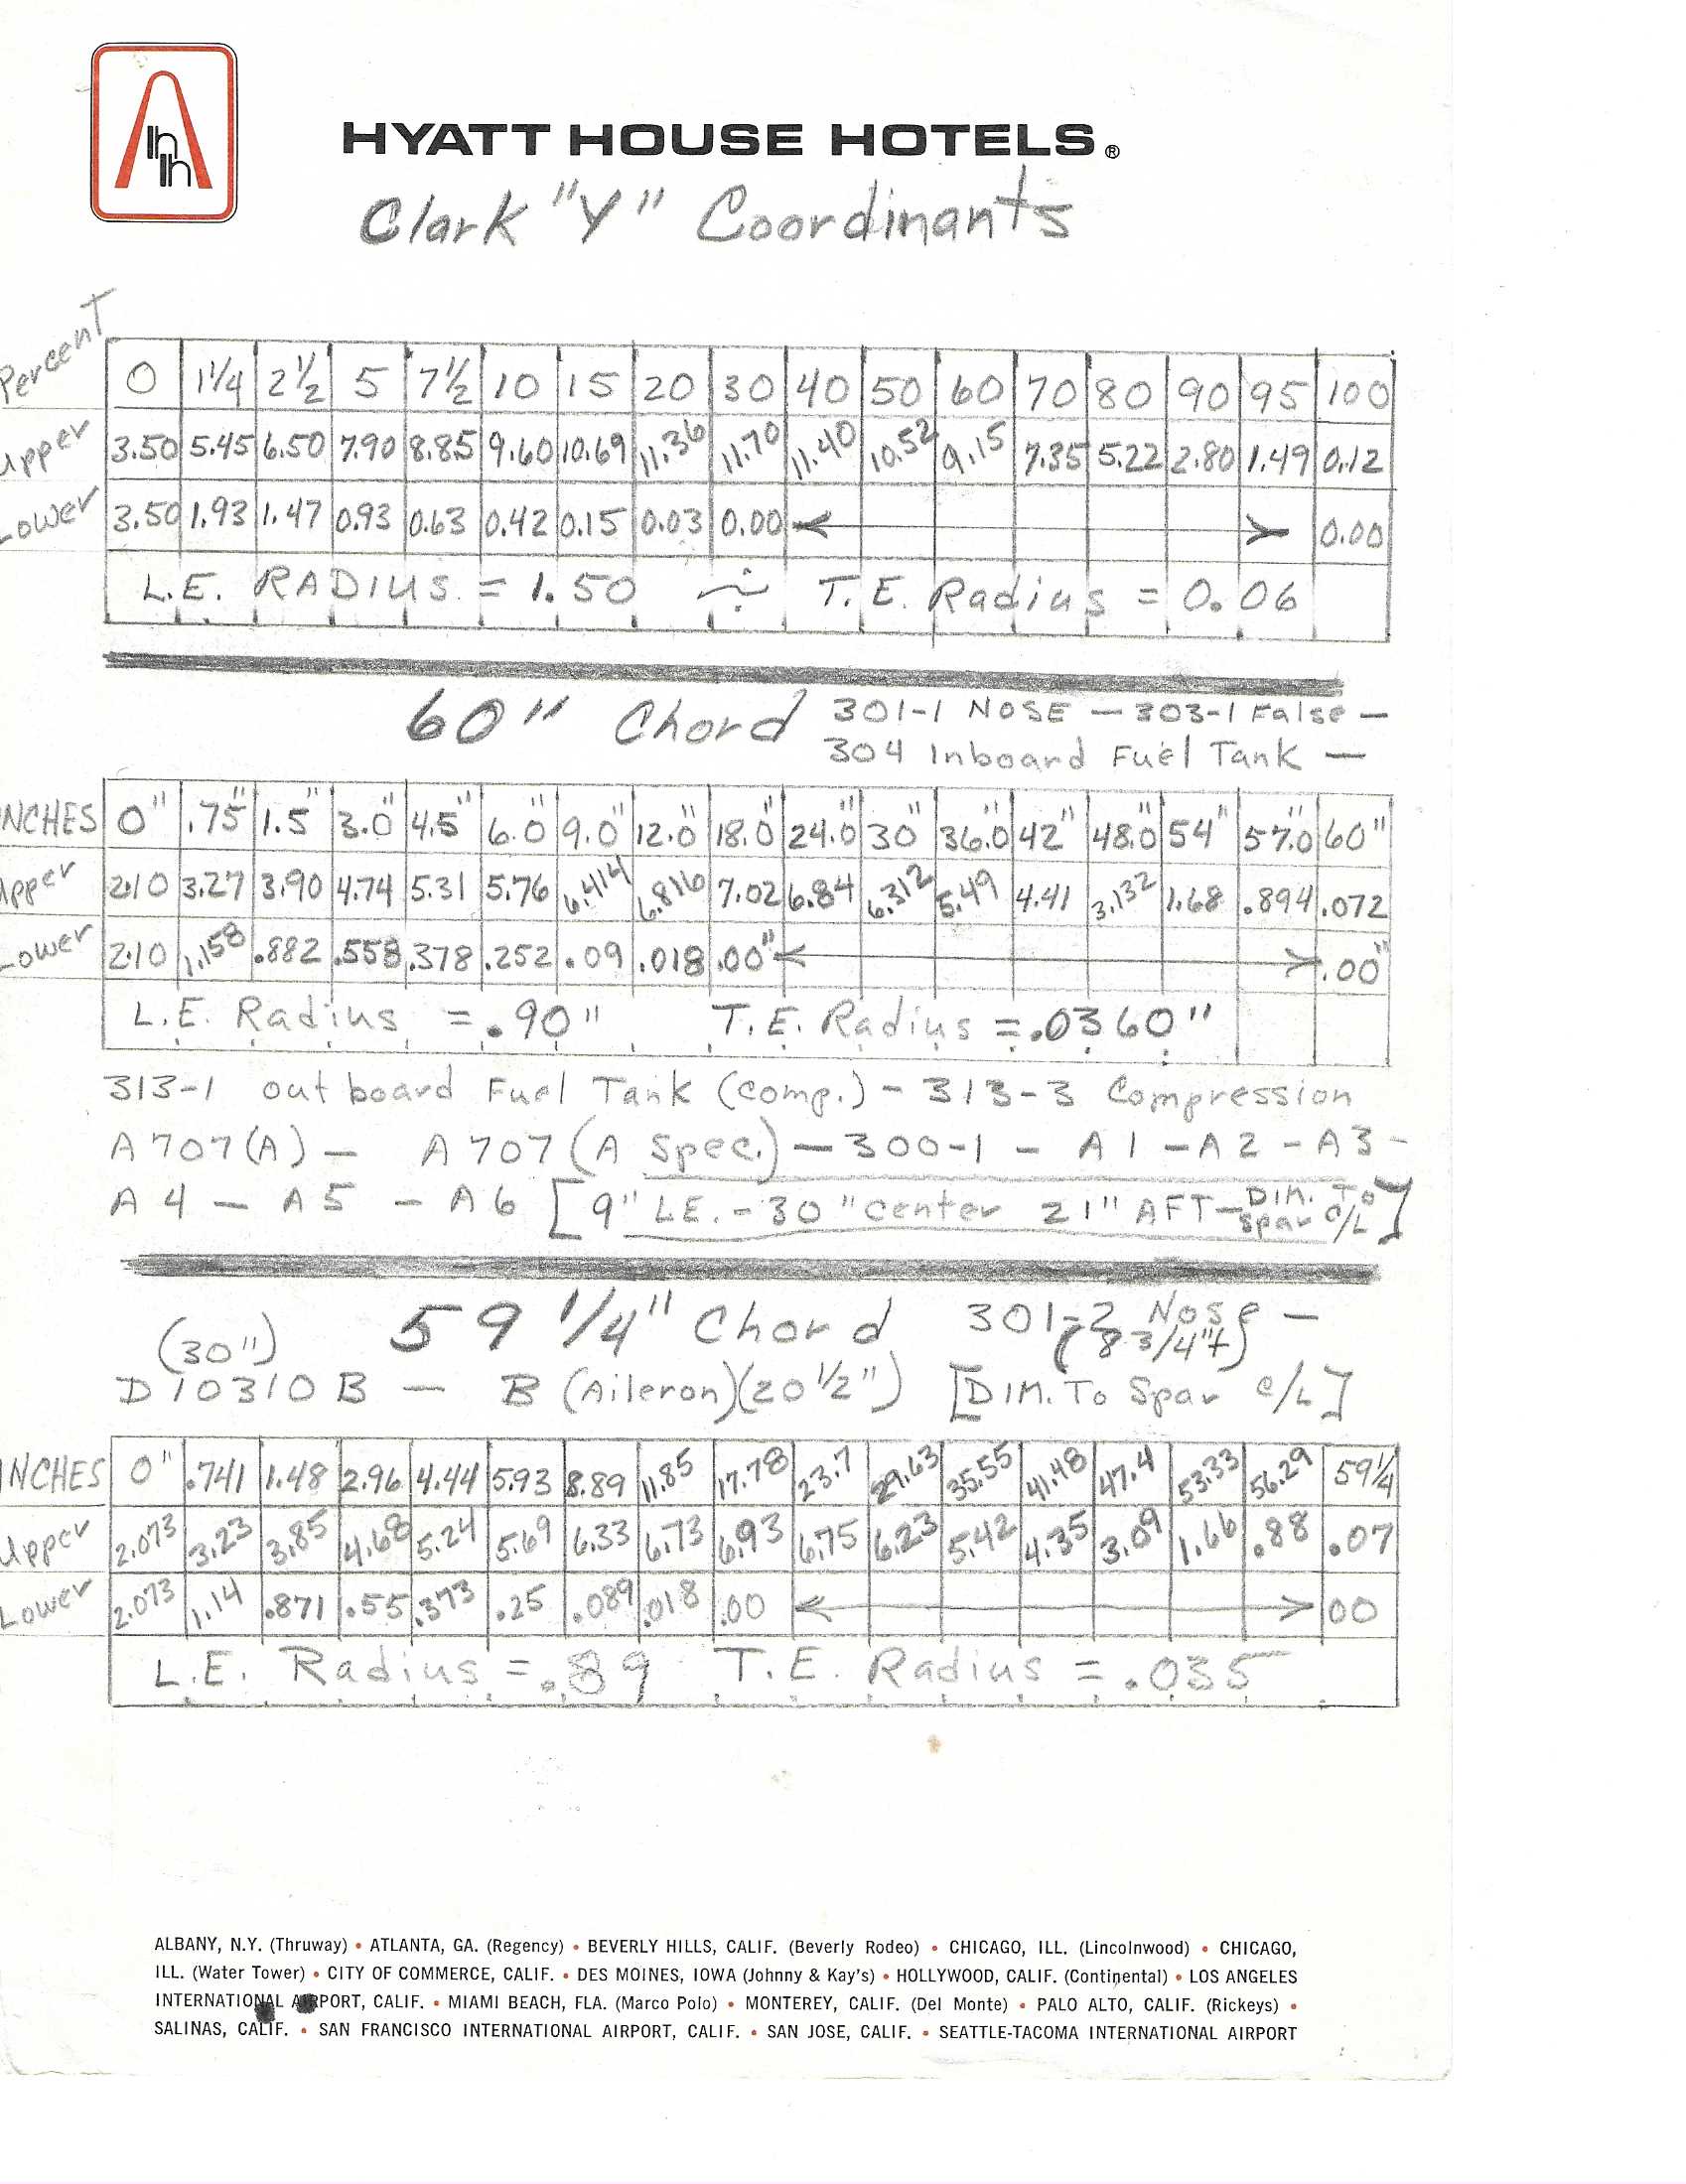 hh
HYATT HOUSE HOTELS®
Clark "Y" Coordinants
Percent 0 1¼ 2½ 5 7½ 10 15 20 30 40 50 60 70 80 90 95 100
Upper 3.50 5.45 6.50 7.90 8.85 9.60 10.69 11.36 11.70 11.40 10.52 9.15 7.35 5.22 2.80 1.49 0.12
Lower 3.50 1.93 1.47 0.93 0.63 0.42 0.15 0.03 0.00 ← → 0.00
L.E. RADIUS = 1.50 T.E. Radius = 0.06
60" Chord 301-1 NOSE — 303-1 False —
304 Inboard Fuel Tank —
INCHES 0" .75" 1.5" 3.0" 4.5" 6.0" 9.0" 12.0" 18.0" 24.0" 30" 36.0" 42" 48.0" 54" 57.0" 60"
Upper 2.10 3.27 3.90 4.74 5.31 5.76 6.414 6.816 7.02 6.84 6.312 5.49 4.41 3.132 1.68 .894 .072
Lower 2.10 1.158 .882 .558 .378 .252 .09 .018 .00" ← → .00"
L.E. Radius = .90" T.E. Radius = .0360"
313-1 outboard Fuel Tank (comp.) - 313-3 Compression
A707(A) — A707(A Spec.) — 300-1 - A1 - A2 - A3 -
A4 — A5 - A6 [9" L.E. - 30" center 21" AFT - DIM. To Spar C/L]
(30") 59 1/4" Chord 301-2 Nose —
(8 3/4"+)
D10310B — B (Aileron)(20 1/2") [DIM. To Spar C/L]
INCHES 0" .741 1.48 2.96 4.44 5.93 8.89 11.85 17.78 23.7 29.63 35.55 41.48 47.4 53.33 56.29 59¼
Upper 2.073 3.23 3.85 4.68 5.24 5.69 6.33 6.73 6.93 6.75 6.23 5.42 4.35 3.09 1.66 .88 .07
Lower 2.073 1.14 .871 .55 .373 .25 .089 .018 .00 ← → 00
L.E. Radius = .89 T.E. Radius = .035
ALBANY, N.Y. (Thruway) • ATLANTA, GA. (Regency) • BEVERLY HILLS, CALIF. (Beverly Rodeo) • CHICAGO, ILL. (Lincolnwood) • CHICAGO,
ILL. (Water Tower) • CITY OF COMMERCE, CALIF. • DES MOINES, IOWA (Johnny & Kay's) • HOLLYWOOD, CALIF. (Continental) • LOS ANGELES
INTERNATIONAL AIRPORT, CALIF. • MIAMI BEACH, FLA. (Marco Polo) • MONTEREY, CALIF. (Del Monte) • PALO ALTO, CALIF. (Rickeys) •
SALINAS, CALIF. • SAN FRANCISCO INTERNATIONAL AIRPORT, CALIF. • SAN JOSE, CALIF. • SEATTLE-TACOMA INTERNATIONAL AIRPORT